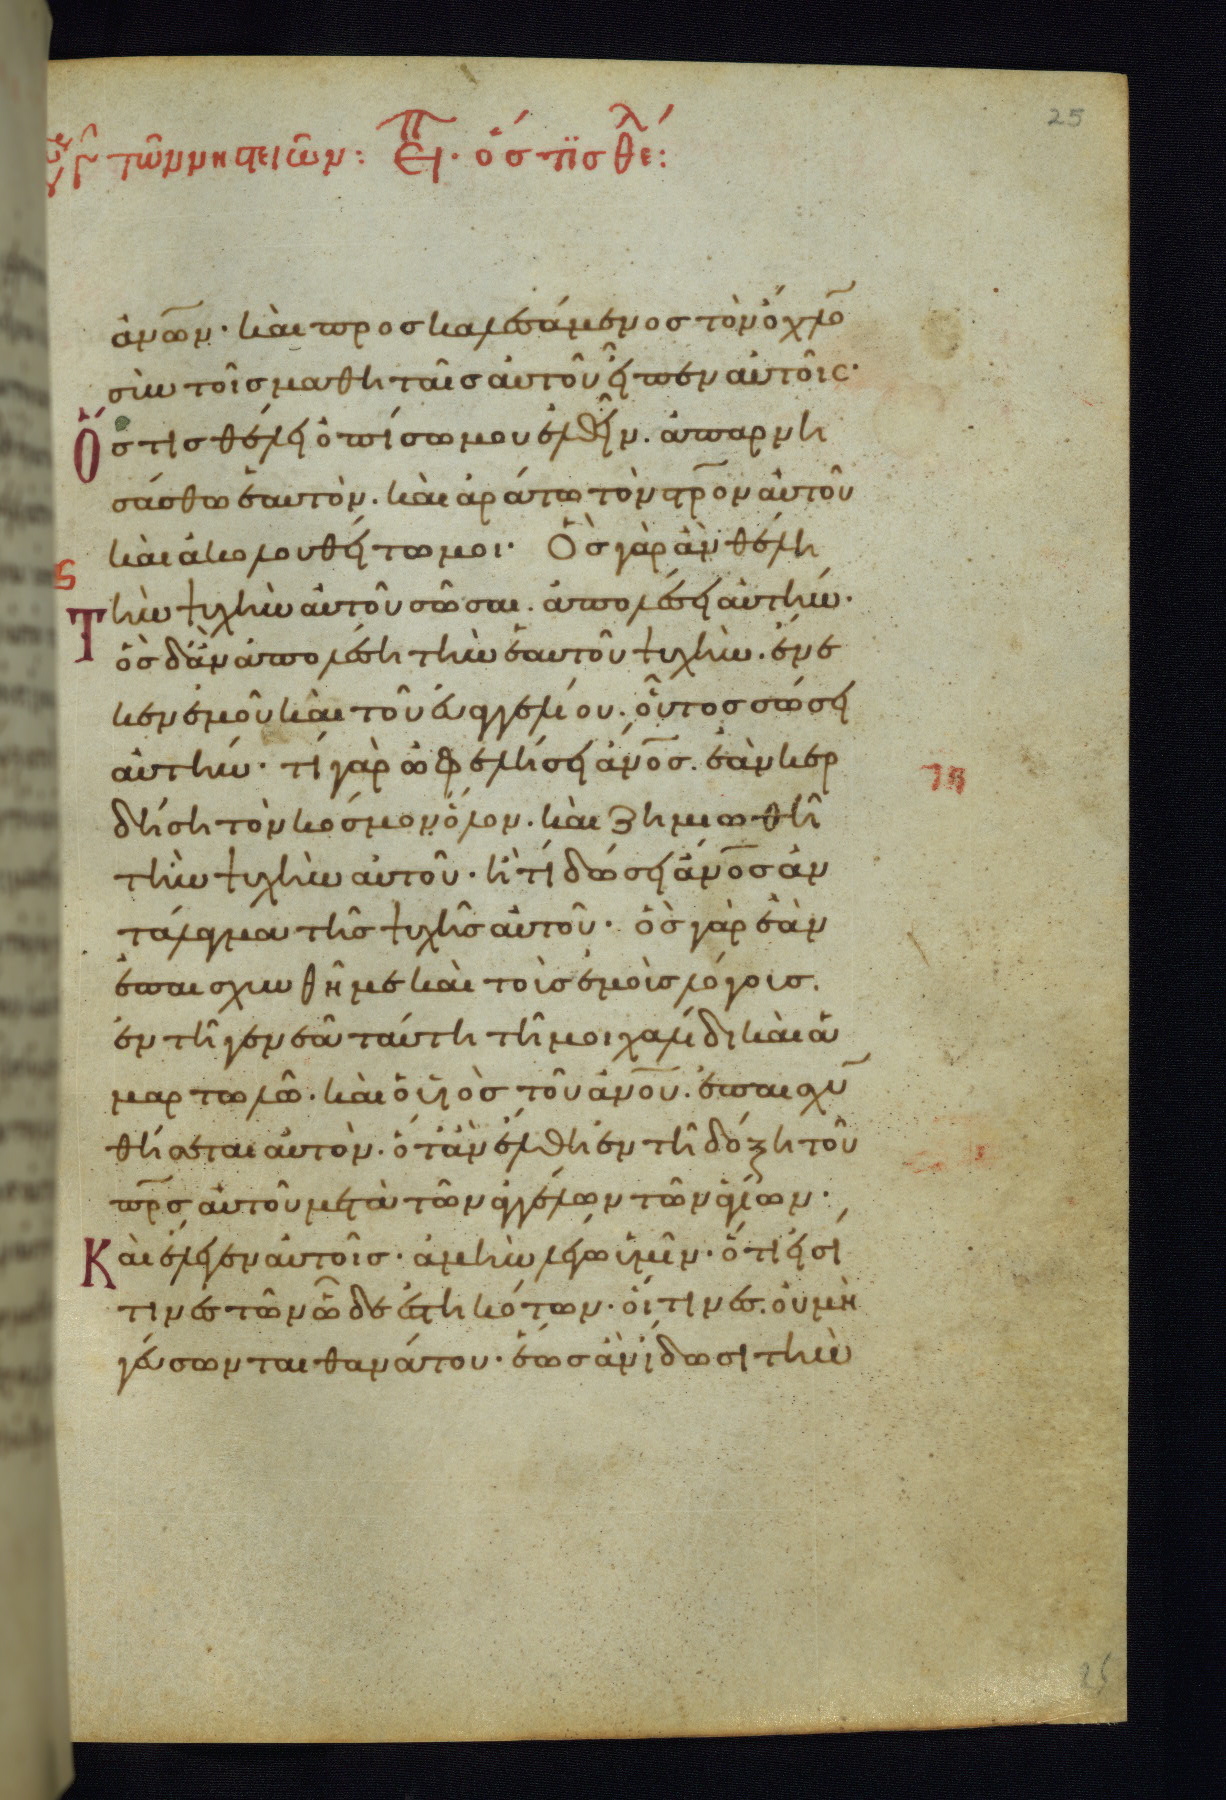 25
τῶν νηστειῶν: Εἶπ. ὅστις θέλ:
ἀν̅ων· καὶ προσκαλεσάμενος τὸν ὄχλο
σὺν τοῖς μαθηταῖς αὐτοῦ εἶπεν αὐτοῖς·
Ὅστις θέλει ὀπίσω μου ἐλθεῖν. ἀπαρνη
σάσθω ἑαυτὸν. καὶ ἀράτω τὸν σρ̅ον αὐτοῦ
καὶ ἀκολουθείτω μοι· Ὃς γὰρ ἂν θέλη
τὴν ψυχὴν αὐτοῦ σῶσαι. ἀπολέσει αὐτήν·
ὃς δἂν ἀπολέση τὴν ἑαυτοῦ ψυχὴν. ἕνε
κεν ἐμοῦ καὶ τοῦ εὐαγγελίου. οὗτος σώσει
αὐτήν· τί γὰρ ὠφελήσει ἄν̅ος. ἐὰν κερ
δήση τὸν κόσμον ὅλον. καὶ ζημιωθῆ
τὴν ψυχὴν αὐτοῦ· ἢ τί δώσει ἄν̅ος ἀν
τάλαγμα τῆς ψυχῆς αὐτοῦ· ὃς γὰρ ἐὰν
ἐπαισχυνθῆ με καὶ τοὺς ἐμοὺς λόγους.
ἐν τῆ γενεᾶ ταύτη τῆ μοιχαλίδι καὶ ἁ
μαρτωλῶ. καὶ ὁ υἱὸς τοῦ ἀν̅ου. ἐπαισχυ
θήσεται αὐτὸν. ὅταν ἔλθη ἐν τῆ δόξη τοῦ
πρ̅ς αὐτοῦ μετὰ τῶν ἀγγέλων τῶν ἁγίων·
Καὶ ἔλεγεν αὐτοῖς· ἀμὴν λέγω ὑμῖν· ὅτι εἰσί
τινες τῶν ὧδε ἑστηκότων· οἵτινες. οὐ μὴ
γεύσωνται θανάτου· ἕως ἂν ἴδωσι τὴν